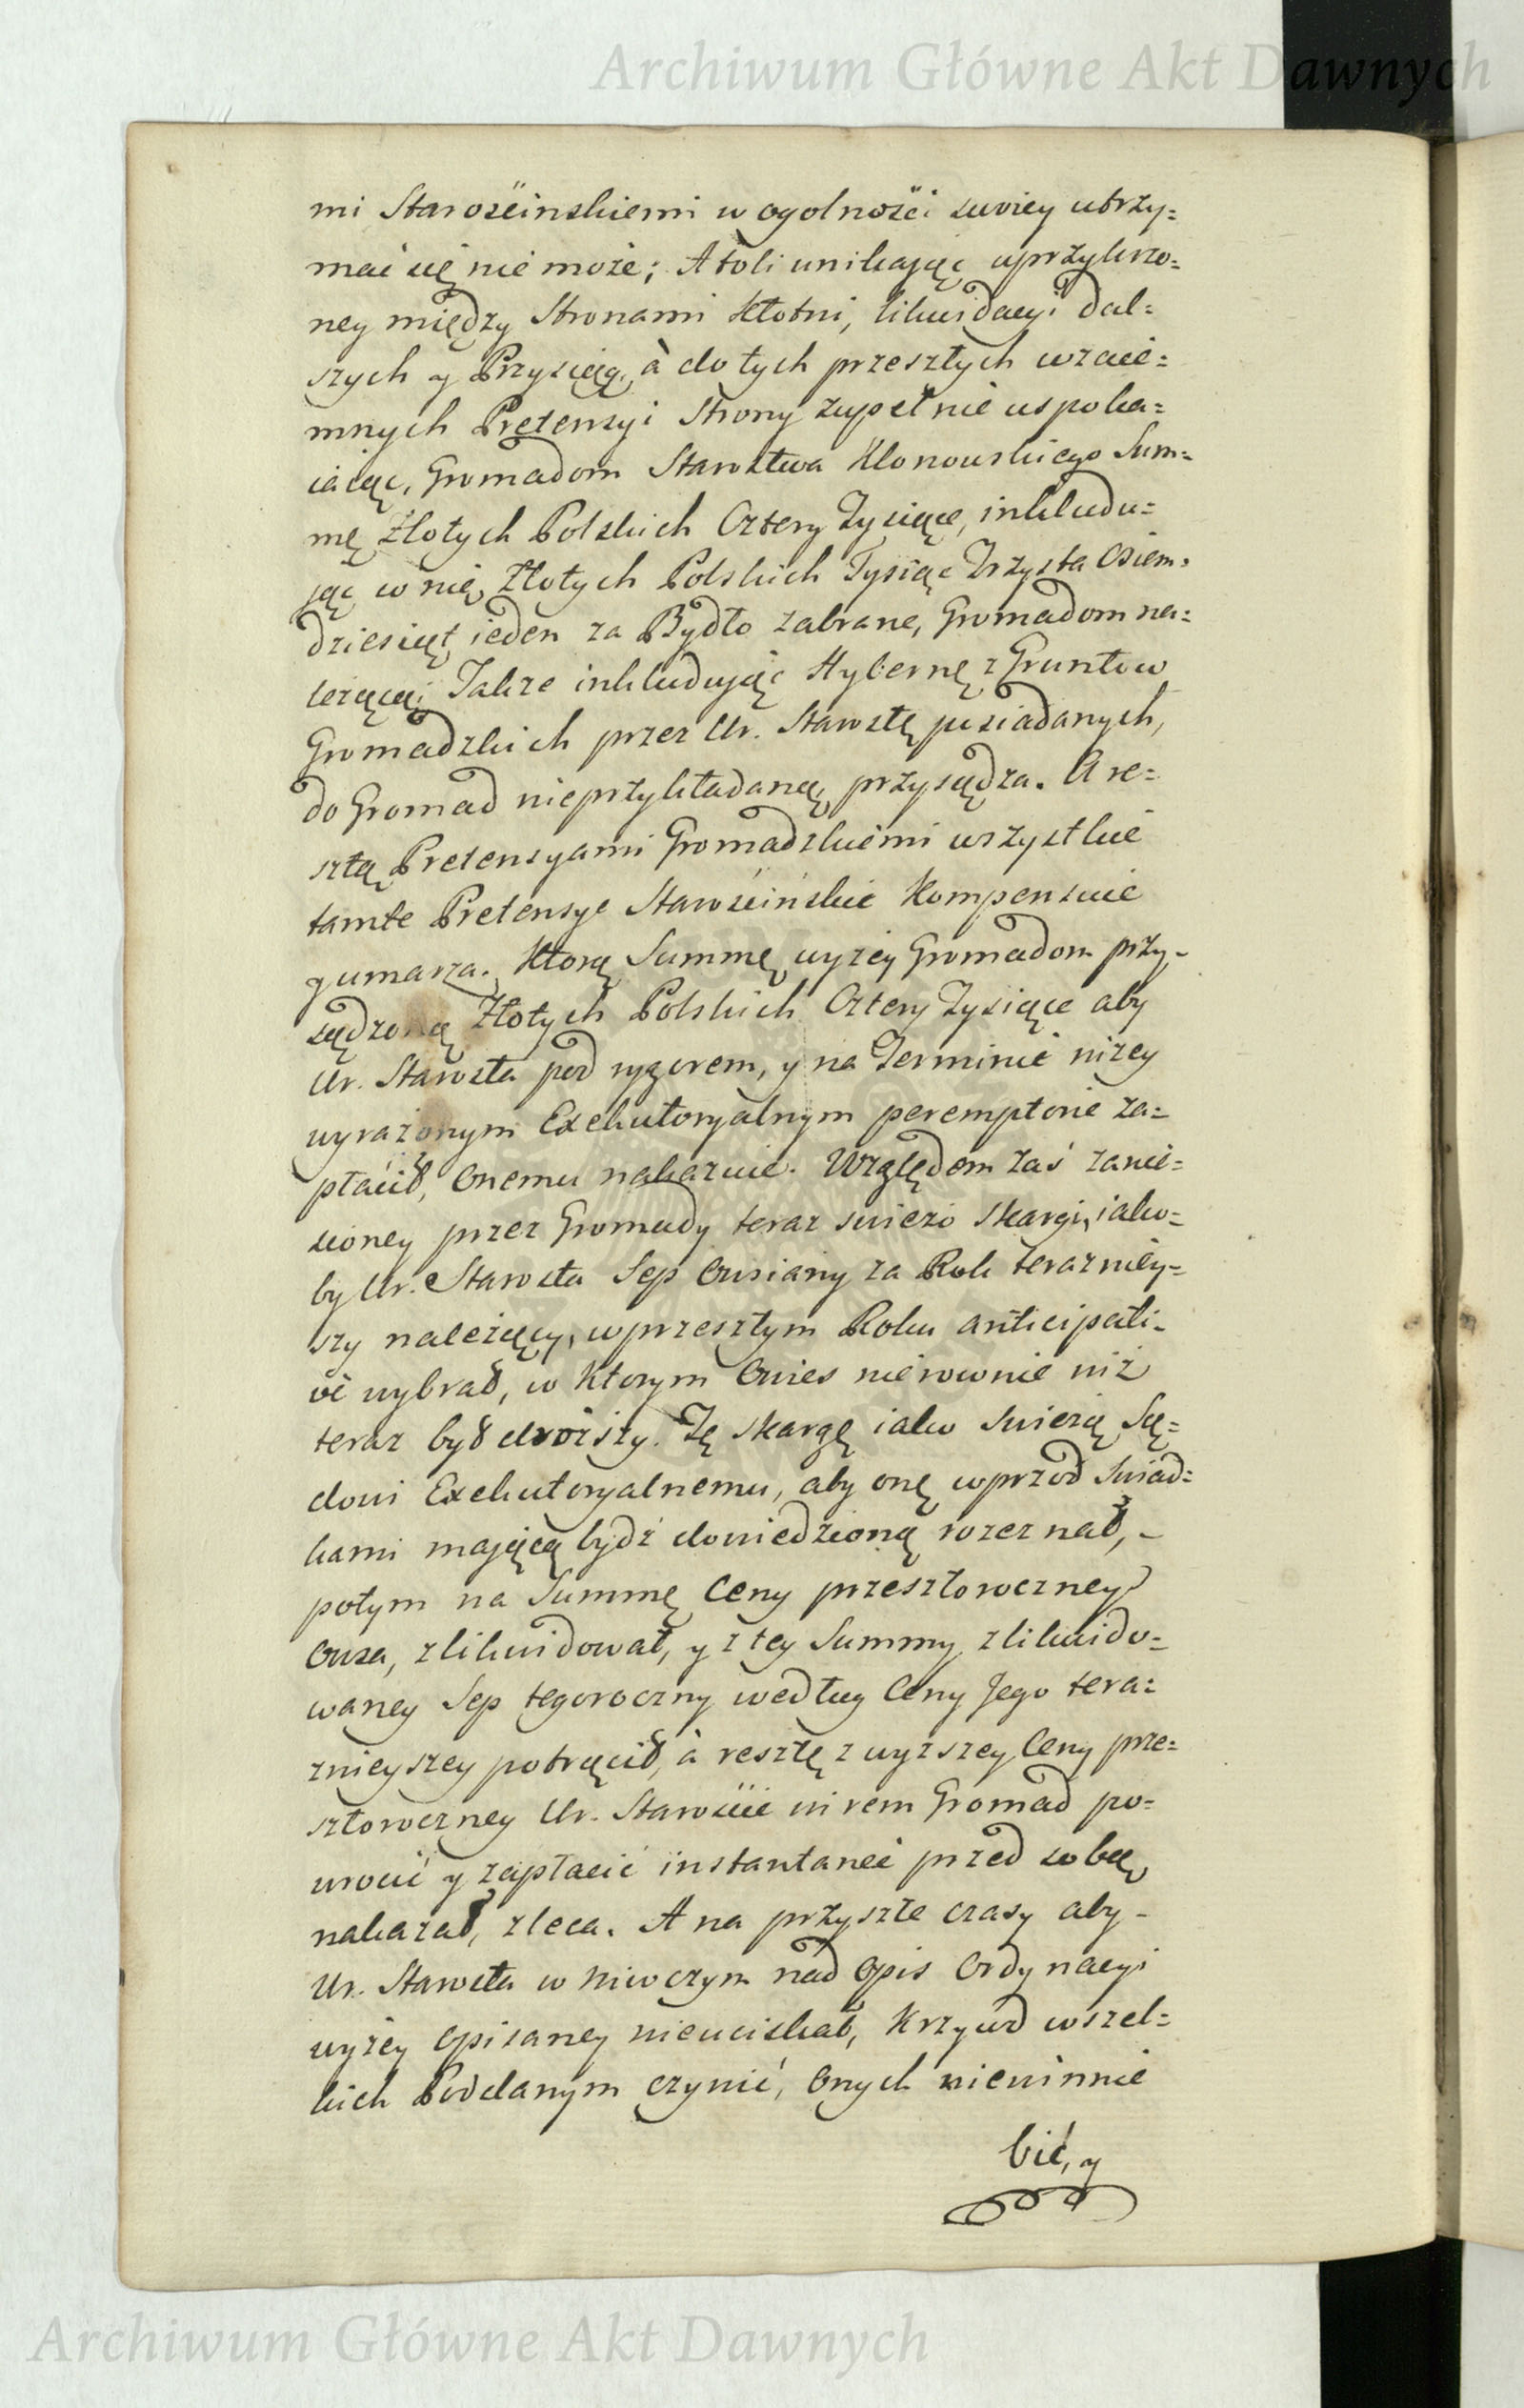 Archiwum Główne Akt Dawnych
mi Starościnskiemi w ogolności swoiey utrzy=
mać się nie może; Atoli unikaiąc uprzykrzo=
ney między Stronami Kłotni, likwidacyi dal=
szych y Przysiąg, à do tych przeszłych wzaie=
mnych Pretensyi Strony zupełnie uspoka=
iaiąc, Gromadom Starostwa Klonowskiego Sum=
mę Złotych Polskich Cztery Tysiące, inkludu=
jąc w nię, Złotych Polskich Tysiąc Trzysta Osiem=
dziesiąt ieden za Bydło zabrane, Gromadom na=
leżącą; Także inkludując Hybernę z Gruntow
Gromadzkich przez Ur. Starostę posiadanych,
do Gromad nieprzykładaną, przysądza. A re=
sztą Pretensyami Gromadzkiemi wszystkie
tamte Pretensye Starościńskie Kompensuie
y umarza. Ktorą Summę wyżey Gromadom przy-
sądzoną Złotych Polskich Cztery Tysiące aby
Ur. Starosta pod rygorem, y na Terminie niżey
wyrażonym Exekutoryalnym peremptorie za=
płacił, Onemu nakazuie. Względem zaś zanie=
sioney przez Gromady teraz swieżo Skargi, iako=
by Ur. Starosta Sep Owsiany za Rok terazniey=
szy należący, w przeszłym Roku anticipati-
vè wybrał, w ktorym Owies nierownie niż
teraz był droższy. Tę skargę iako swieżą Są=
dowi Exekutoryalnemu, aby onę wprzod Swiad=
kami mającą bydź dowiedzioną rozeznał, -
potym na Summę Ceny przeszłoroczney
Owsa, zlikwidował, y z tey Summy zlikwido=
waney Sep tegoroczny według Ceny Jego tera=
znieyszey potrącił, à resztę z wyższey Ceny prze=
szłoroczney Ur. Staroście wirem Gromad po=
wrocić y zapłacić instantaneè przed sobą
nakazał, zleca. A na przyszłe czasy aby -
Ur. Starosta w niwczym nad Opis Ordynacyi
wyżey Opisaney nieuciskał, Krzywd wszel=
kich Poddanym czynić, Onych niewinnie
bić, y
Archiwum Główne Akt Dawnych